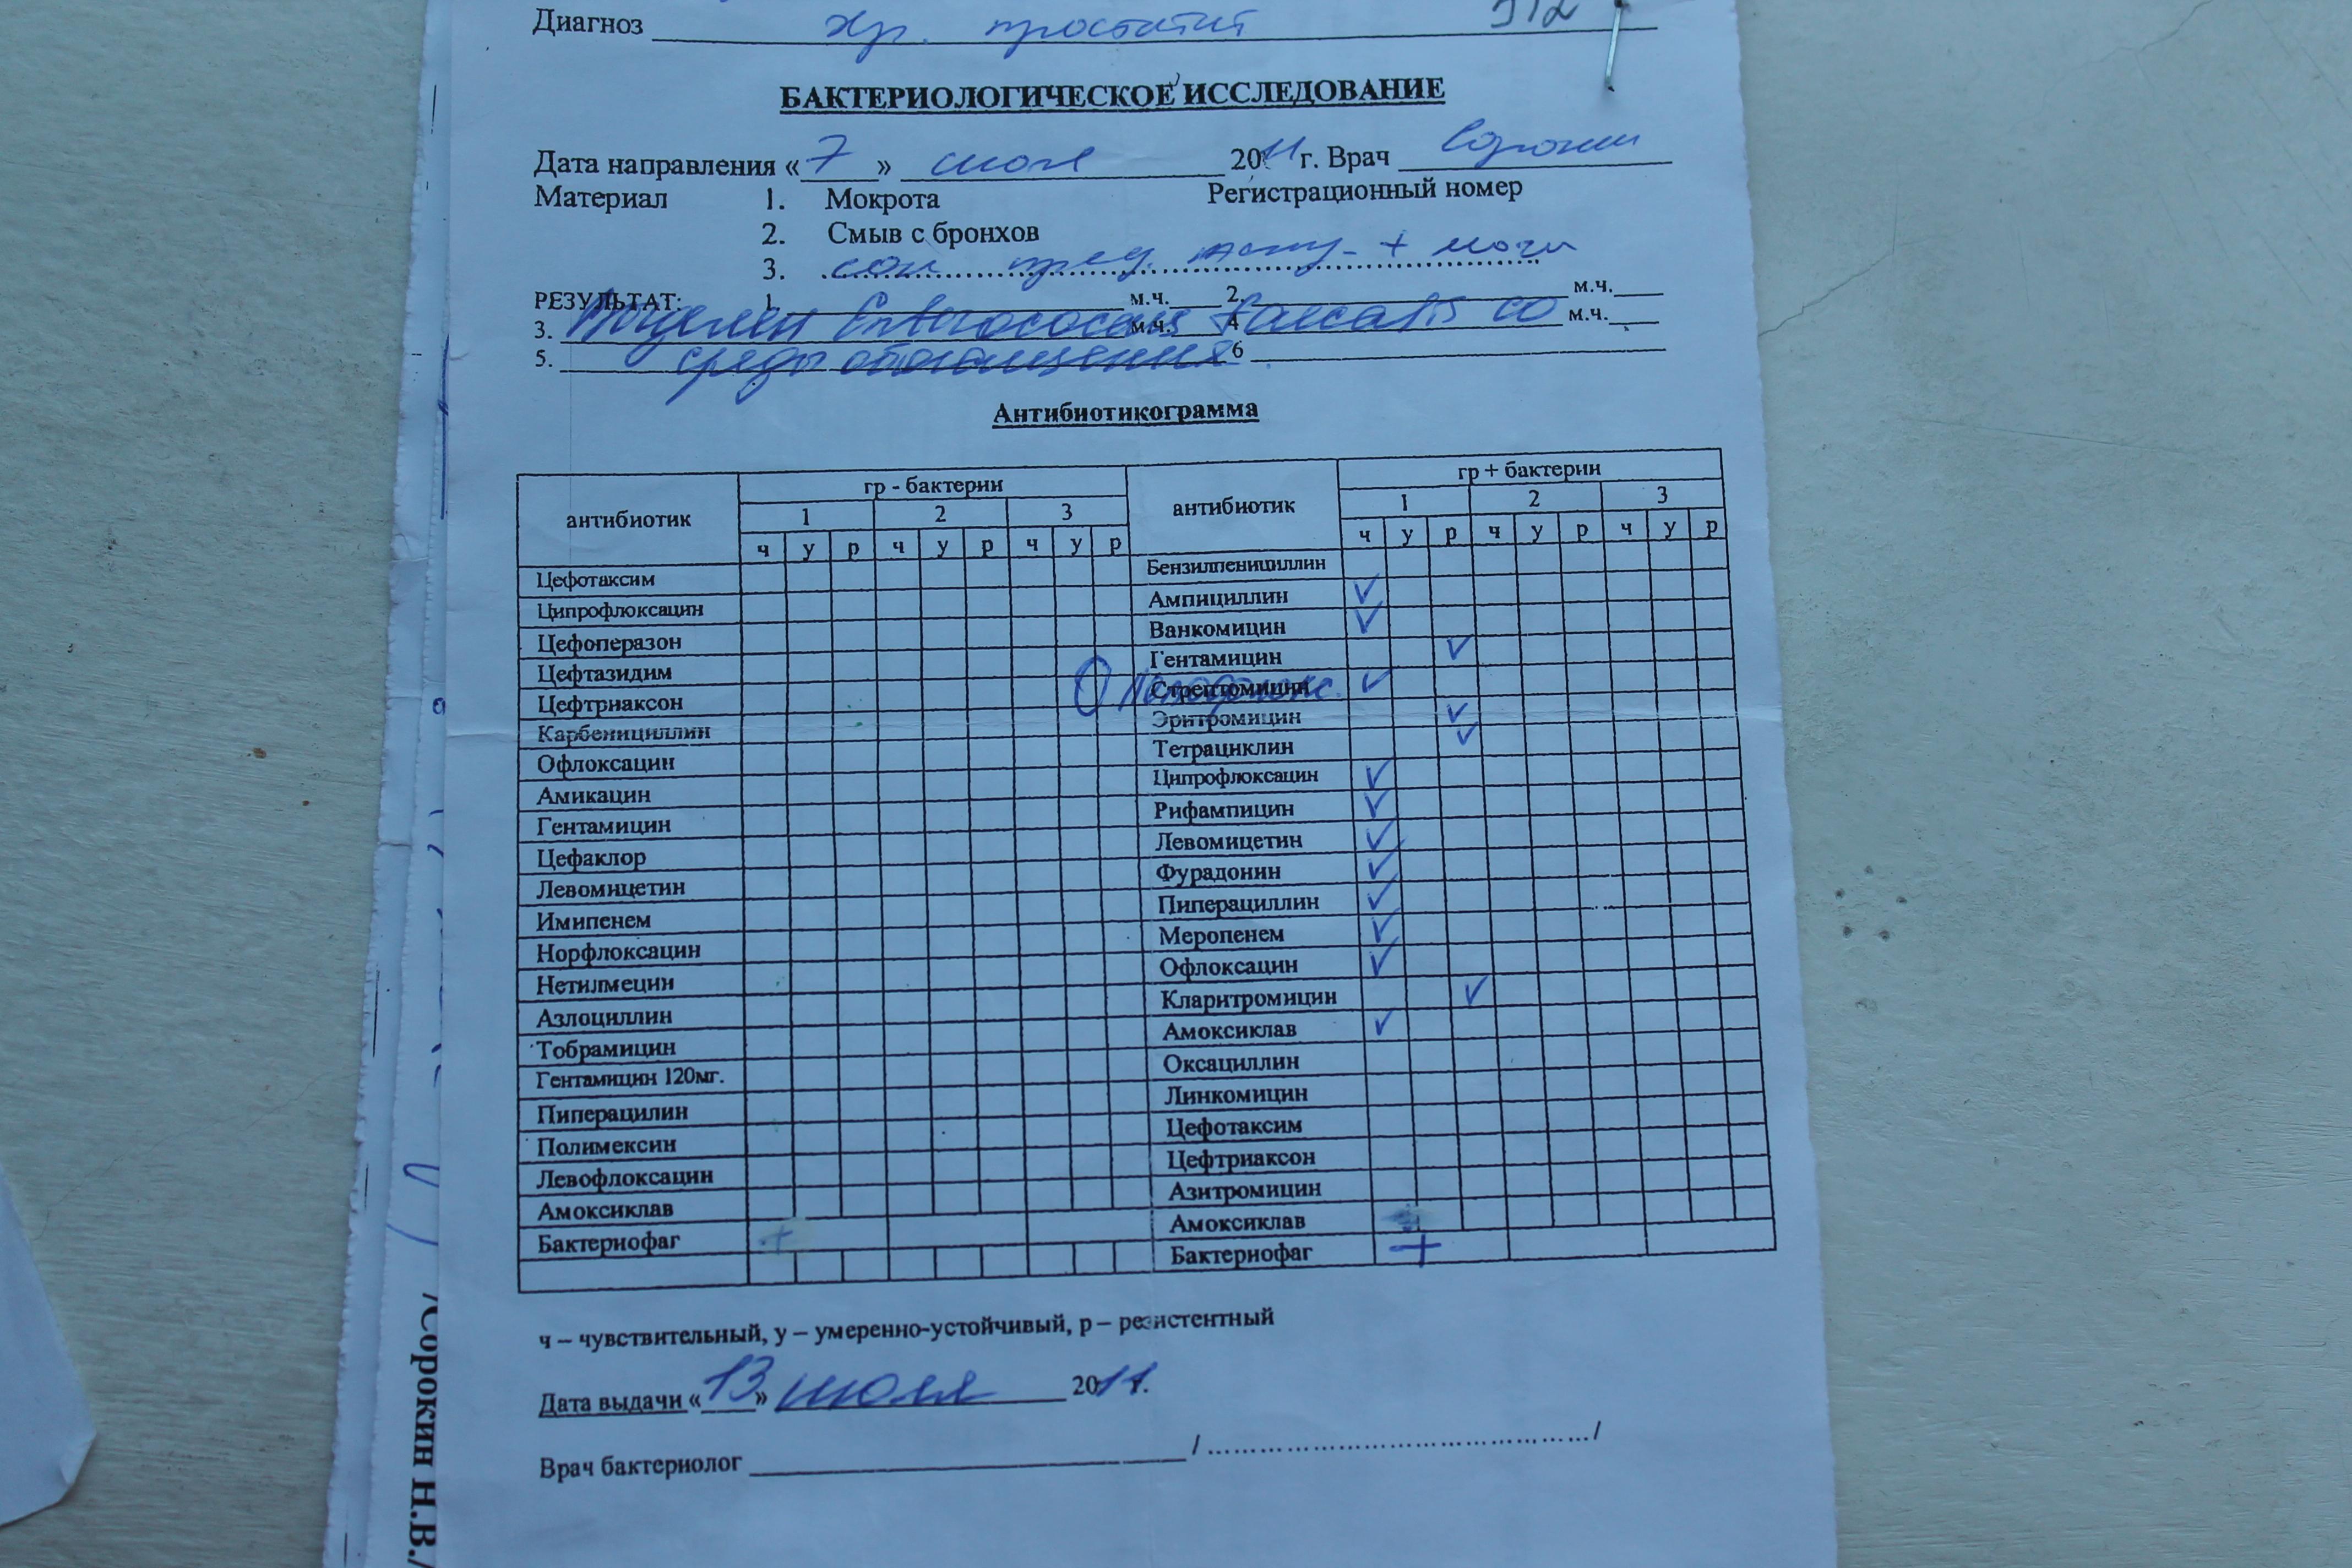 Диагноз хр. простатит 512
БАКТЕРИОЛОГИЧЕСКОЕ ИССЛЕДОВАНИЕ
Дата направления «7» июля 2011 г. Врач Сорокин
Материал 1. Мокрота Регистрационный номер
2. Смыв с бронхов
3. сок пред. + мочи
РЕЗУЛЬТАТ: 1. м.ч. 2. м.ч.
3. Выделен Enterococcus faecalis со м.ч. 4 м.ч.
5. среды обогащения 6
Антибиотикограмма
антибиотик гр - бактерии антибиотик гр + бактерии
1 2 3 1 2 3
ч у р ч у р ч у р ч у р ч у р ч у р
Цефотаксим Бензилпенициллин
Ципрофлоксацин Ампициллин ✓
Цефоперазон Ванкомицин ✓
Цефтазидим Гентамицин ✓
Цефтриаксон Стрептомицин ✓
Карбенициллин Эритромицин ✓
Офлоксацин Тетрациклин ✓
Амикацин Ципрофлоксацин ✓
Гентамицин Рифампицин ✓
Цефаклор Левомицетин ✓
Левомицетин Фурадонин ✓
Имипенем Пиперациллин ✓
Норфлоксацин Меропенем ✓
Нетилмецин Офлоксацин ✓
Азлоциллин Кларитромицин ✓
Тобрамицин Амоксиклав ✓
Гентамицин 120мг. Оксациллин
Пиперацилин Линкомицин
Полимексин Цефотаксим
Левофлоксацин Цефтриаксон
Амоксиклав Азитромицин
Бактериофаг + Амоксиклав
Бактериофаг +
ч – чувствительный, у – умеренно-устойчивый, р – резистентный
Дата выдачи «13» июля 2011 г.
Врач бактериолог / /
/Сорокин Н.В./